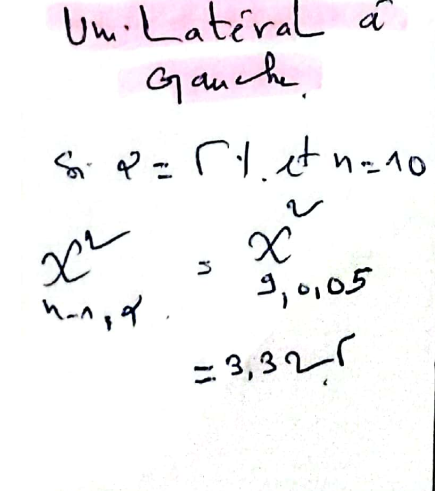 Uni-Latéral à
Gauche.
Si α = 5%. et n=10
χ²n-1,α = χ²9,0,05
= 3,325